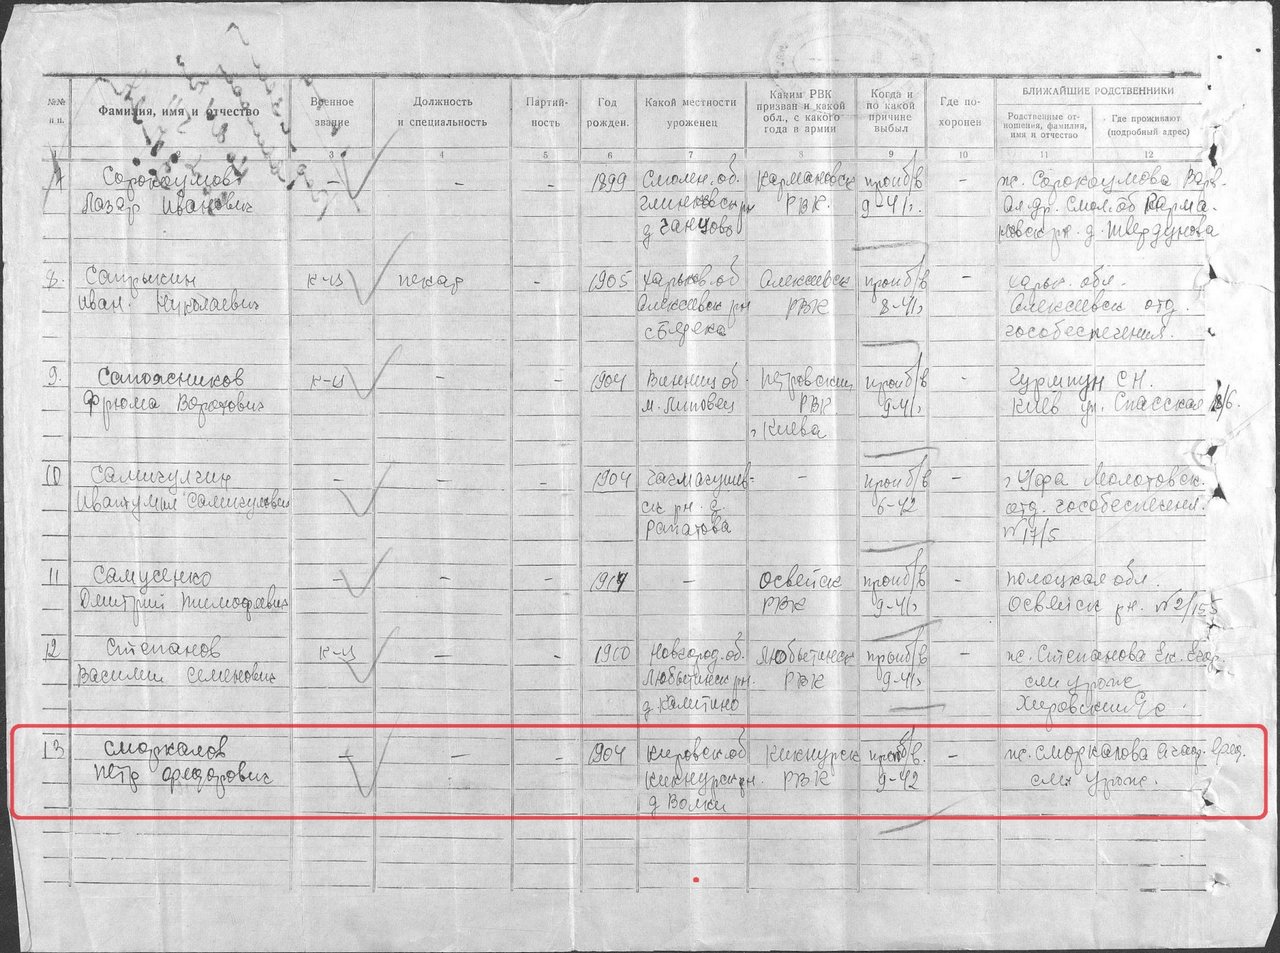 №№ п.п.
Фамилия, имя и отчество
Военное звание
Должность и специальность
Партий-ность
Год рожден.
Какой местности уроженец
Каким РВК призван и какой обл., с какого года в армии
Когда и по какой причине выбыл
Где по-хоронен
БЛИЖАЙШИЕ РОДСТВЕННИКИ
Родственные от-ношения, фамилия, имя и отчество
Где проживают (подробный адрес)
3 4 5 6 7 8 9 10 11 12
Сорокоумов — — — 1899 Смолен. об. Кармановск проп б/в — ж. Сорокоумова Варв.
Лазар Иванович РВК. 9-41г. Ал. др. Смол. об Карма-
д
8. Сапрыкин к-ц пекар - 1905 Харьков. об Алексеевск проп б/в — Харьк. обл.
Иван. Николаевич Алексеевск рн РВК 8-41г Алексеевск отд.
гособеспечения.
9. Сапожников к-ц — - 1904 Винниц об. Петровский проп б/в — Гурмпун С.Н.
Фрома м. Липовец РВК 9-41г Киев ул. Спасская 8/6.
г Киева
10 Самигулин — — - 1904 — проп б/в — г Уфа Молотовск.
ск рн. д 6-42 отд. гособеспечения.
Рапатова №17/5
11 Самусенко — — - — Освейск проп б/в — Полоцкая обл.
Дмитрий Тимофеевич РВК 9-41г Освейск рн. №2/155
12 Степанов к-ц — - 1900 Новгород. об. Любытинск проп б/в — ж. Степанова Ек.
Василий Семенович Любытинск рн. РВК 9-41г см урож
д Калитино
13 Сморкалов — — - 1904 Кировск об Кикнурск проп б/в. — ж. Сморкалова
Петр Федорович Кикнурск рн. РВК 9-42 см. урож.
д Волки